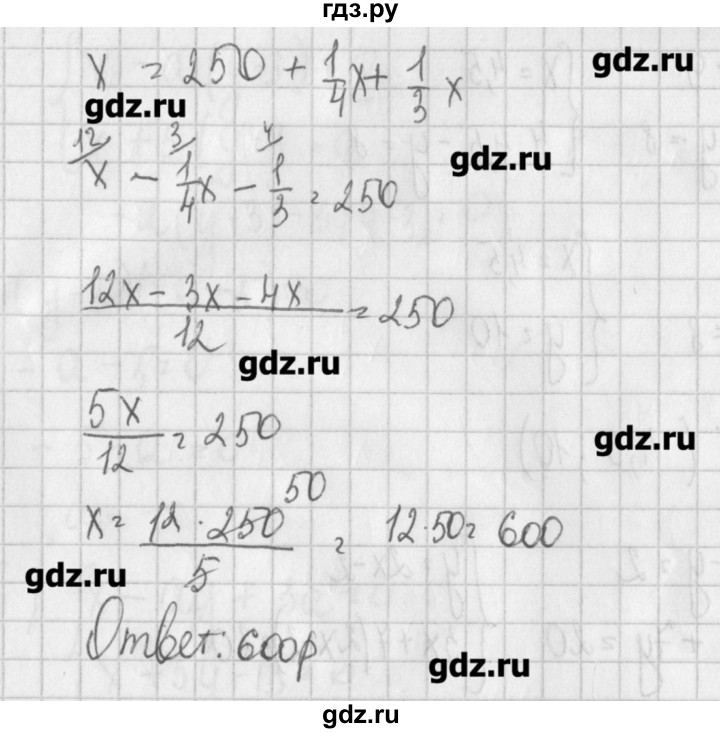 гдз.ру
x = 250 + 1/4 x + 1/3 x
gdz.ru
gdz.ru
12/ 3/ 4/
x - 1/4 x - 1/3 = 250
gdz.ru
(12x - 3x - 4x)/12 = 250
gdz.ru
5x/12 = 250
gdz.ru
x = (12 · 250)/5 = 12·50 = 600
50
gdz.ru
Ответ: 600р
gdz.ru
gdz.ru